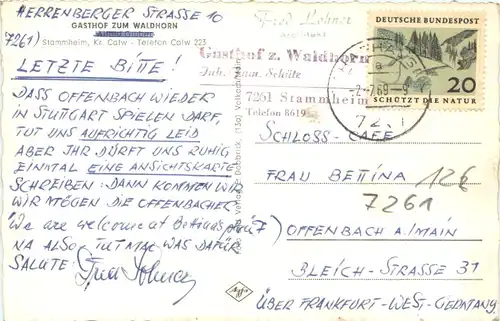 HERRENBERGER STRASSE 10
GASTHOF ZUM WALDHORN
7261)
Stammheim, Kr. Calw - Telefon Calw 223
LETZTE BITTE!
DASS OFFENBACH WIEDER
IN STUTTGART SPIELEN DARF,
TUT UNS AUFRICHTIG LEID
ABER IHR DÜRFT UNS RUHIG
EINMAL EINE ANSICHTSKARTE
SCHREIBEN: DANN KOMMEN WIR
WIR MÖGEN DIE OFFENBACHER
We are welcome at Bettinas
NA ALSO, TUT MAL WAS DAFÜR
SALUTE!
Fred Lohner
Architekt
Gasthof z. Waldhorn
Inh. Schütz
7261 Stammheim
Telefon 8619
DEUTSCHE BUNDESPOST
20
SCHÜTZT DIE NATUR
-2.-7.69-9
SCHLOSS-CAFE
FRAU BETTINA 126
7261
OFFENBACH A/MAIN
BLEICH-STRASSE 31
ÜBER FRANKFURT-WEST-GERMANY
Agfa